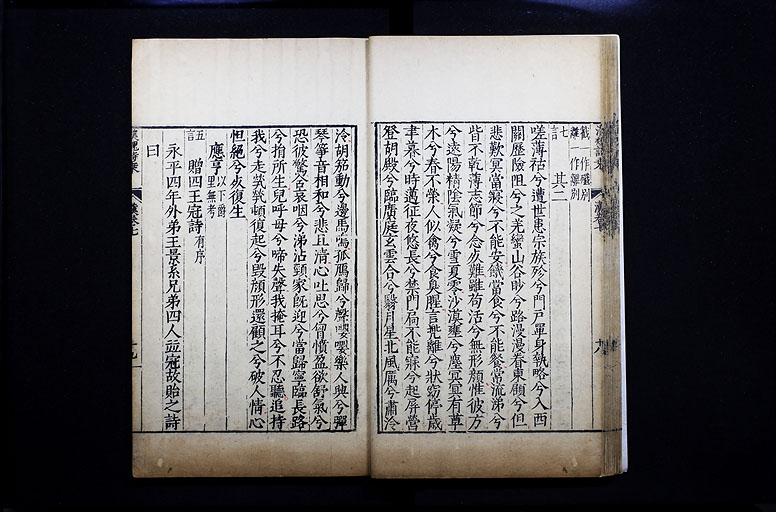 截一作殲別
離一作離別
七言
其二
嗟薄祜兮遭世患宗族殄兮門戶單身執略兮入西
關歷險阻兮之羌蠻山谷眇兮路漫漫眷東顧兮但
悲歎冥當寢兮不能安饑當食兮不能餐常流涕兮
眥不乾薄志節兮念死難雖苟活兮無形顏惟彼方
兮遠陽精陰氣凝兮雪夏零沙漠壅兮塵冥冥有草
木兮春不榮人似禽兮食臭腥言兜離兮狀窈停歲
聿暮兮時邁征夜悠長兮禁門扃不能寐兮起屏營
登胡殿兮臨廣庭玄雲合兮翳月星北風厲兮肅泠
泠胡笳動兮邊馬鳴孤鴈歸兮聲嚶嚶樂人興兮彈
琴箏音相和兮悲且清心吐思兮胷憤盈欲舒氣兮
恐彼驚含哀咽兮涕沾頸家旣迎兮當歸寧臨長路
兮捐所生兒呼母兮啼失聲我掩耳兮不忍聽追持
我兮走煢煢頓復起兮毀顏形還顧之兮破人情心
怛絕兮死復生
應亨以下爵里無考
五言
贈四王冠詩有序
永平四年外弟王景系兄弟四人並冠故貽之詩
曰